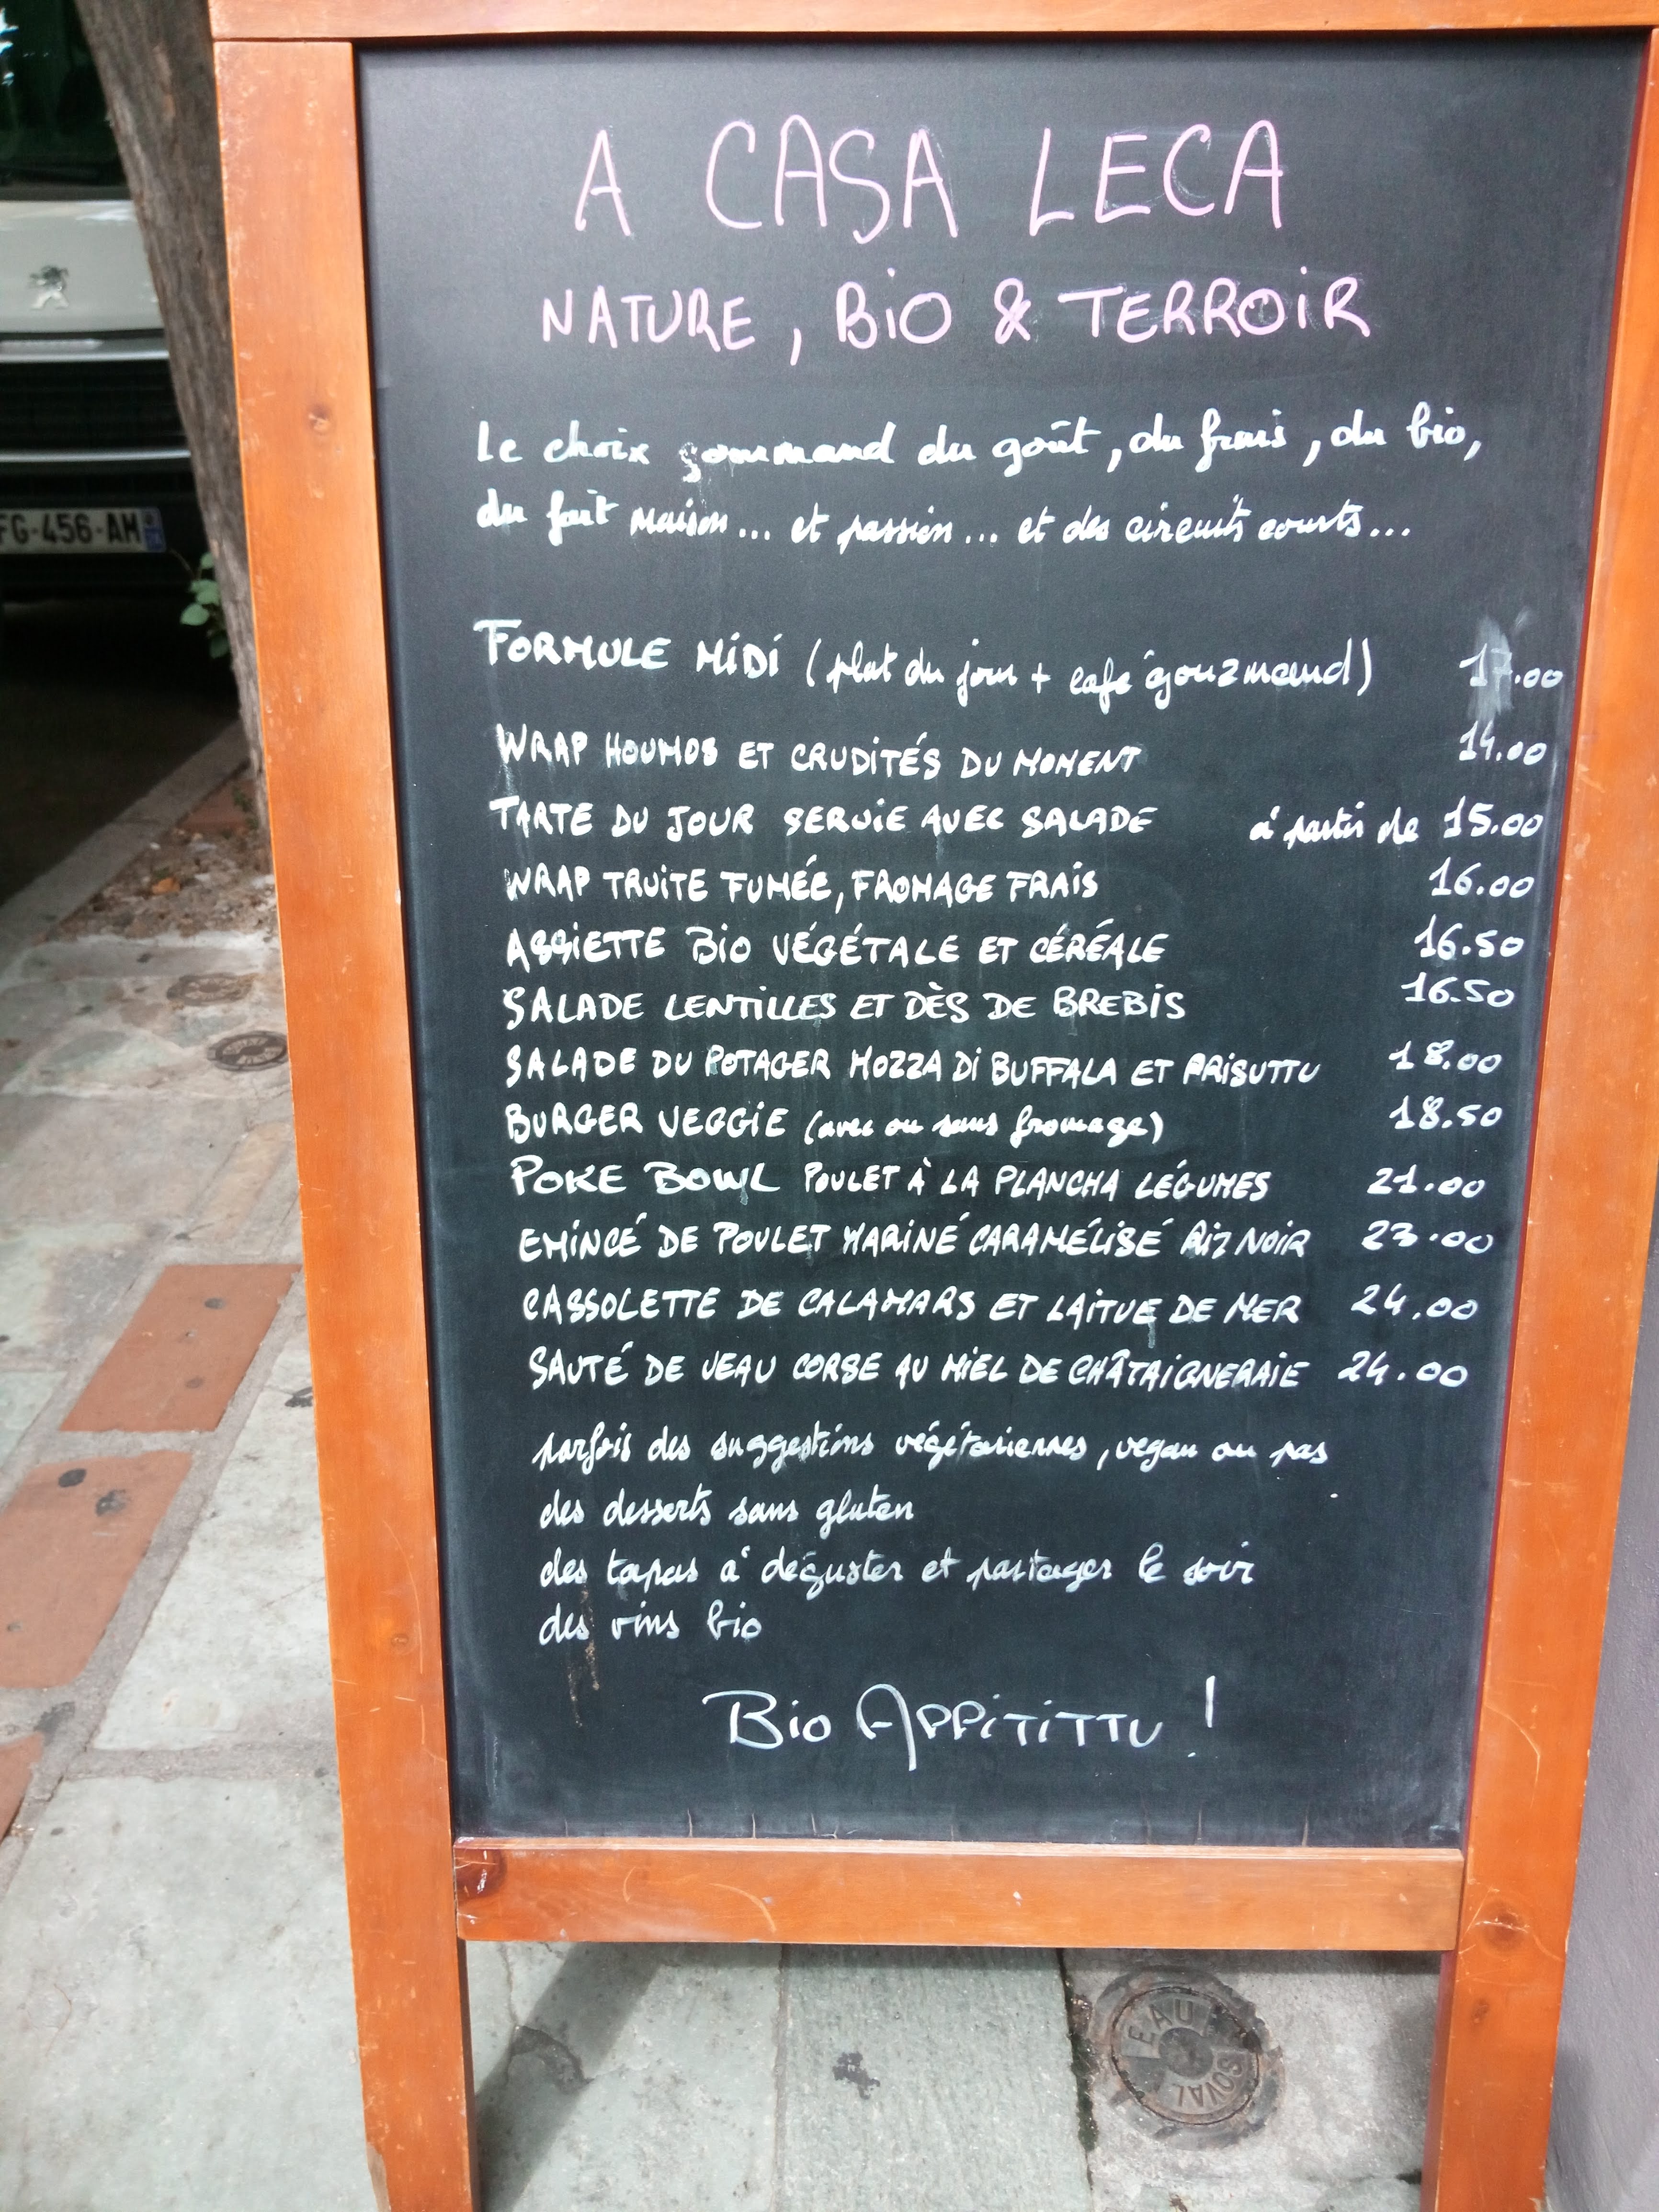 A CASA LECA
NATURE, BIO & TERROIR
Le choix gourmand du goût, du frais, du bio,
du fait maison... et passion... et des circuits courts...
FORMULE MIDI (plat du jour + café gourmand) 17.00
WRAP HOUMOS ET CRUDITÉS DU MOMENT 14.00
TARTE DU JOUR SERVIE AVEC SALADE à partir de 15.00
WRAP TRUITE FUMÉE, FROMAGE FRAIS 16.00
ASSIETTE BIO VÉGÉTALE ET CÉRÉALE 16.50
SALADE LENTILLES ET DÈS DE BREBIS 16.50
SALADE DU POTAGER MOZZA DI BUFFALA ET PRISUTTU 18.00
BURGER VEGGIE (avec ou sans fromage) 18.50
POKE BOWL POULET À LA PLANCHA LÉGUMES 21.00
EMINCÉ DE POULET MARINÉ CARAMÉLISÉ RIZ NOIR 23.00
CASSOLETTE DE CALAMARS ET LAITUE DE MER 24.00
SAUTÉ DE VEAU CORSE AU MIEL DE CHÂTAIGNERAIE 24.00
parfois des suggestions végétariennes, vegan ou pas
des desserts sans gluten
des tapas à déguster et partager le soir
des vins bio
BIO APPITITTU !
FG-456-AM
EAU
SOVAL